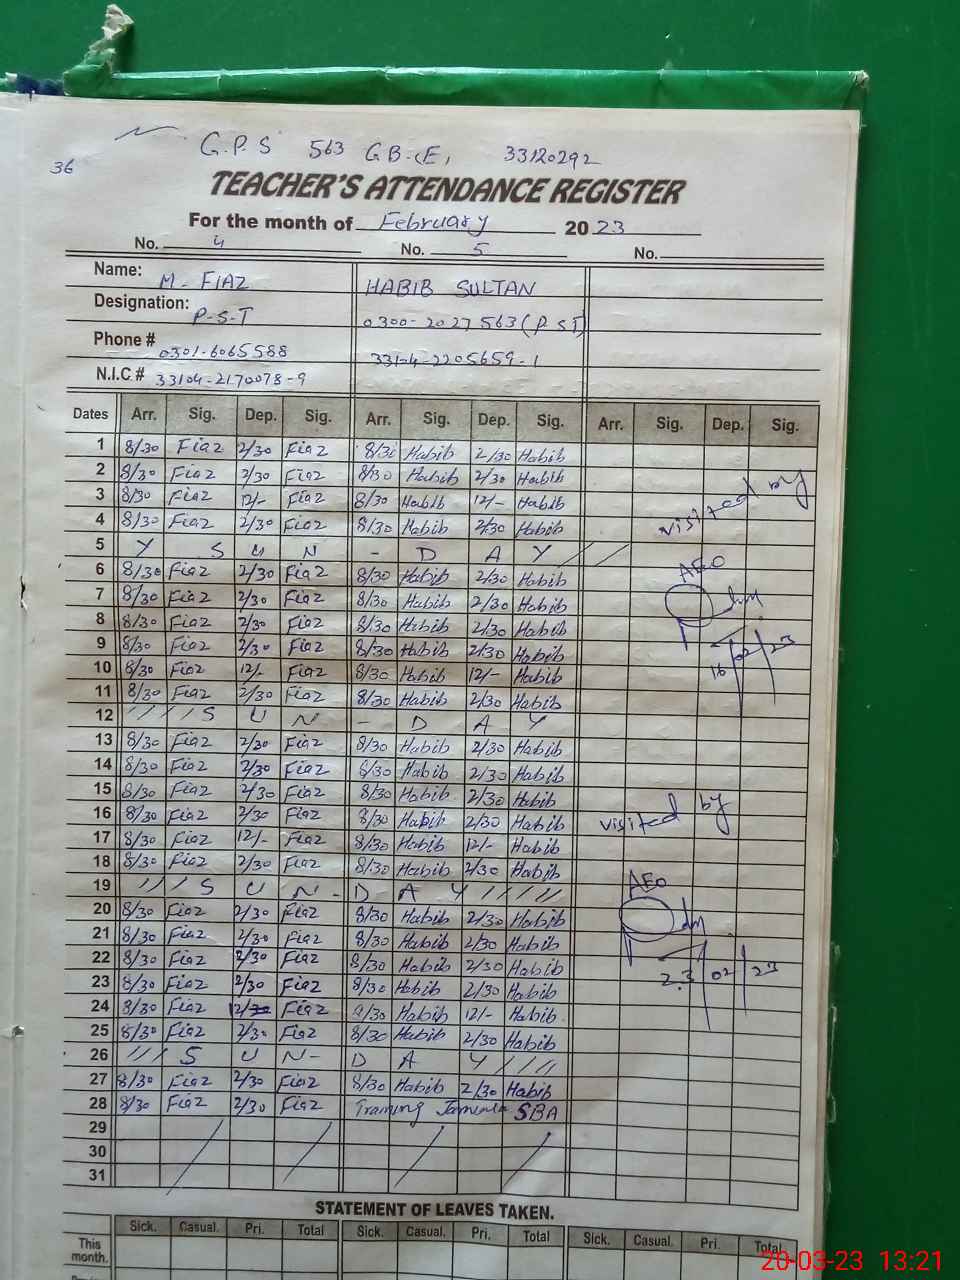 36
G.P.S 563 G.B.(E) 33120292
TEACHER'S ATTENDANCE REGISTER
For the month of February 2023
No. 4 No. 5 No.
Name: M. FIAZ HABIB SULTAN
Designation: P-S-T 0300-2027563 (P.ST)
Phone # 0301-6065588 33104-2205659-1
N.I.C # 33104-2170078-9
Dates Arr. Sig. Dep. Sig. Arr. Sig. Dep. Sig. Arr. Sig. Dep. Sig.
1 8/30 Fiaz 2/30 Fiaz 8/30 Habib 2/30 Habib
2 8/30 Fiaz 2/30 Fiaz 8/30 Habib 2/30 Habib
3 8/30 Fiaz 12/- Fiaz 8/30 Habib 12/- Habib visited by
4 8/30 Fiaz 2/30 Fiaz 8/30 Habib 2/30 Habib
5 S U N - D A Y
6 8/30 Fiaz 2/30 Fiaz 8/30 Habib 2/30 Habib AEO
7 8/30 Fiaz 2/30 Fiaz 8/30 Habib 2/30 Habib
8 8/30 Fiaz 2/30 Fiaz 8/30 Habib 2/30 Habib
9 8/30 Fiaz 2/30 Fiaz 8/30 Habib 2/30 Habib
10 8/30 Fiaz 12/- Fiaz 8/30 Habib 12/- Habib 16 02 23
11 8/30 Fiaz 2/30 Fiaz 8/30 Habib 2/30 Habib
12 S U N - D A Y
13 8/30 Fiaz 2/30 Fiaz 8/30 Habib 2/30 Habib
14 8/30 Fiaz 2/30 Fiaz 8/30 Habib 2/30 Habib
15 8/30 Fiaz 2/30 Fiaz 8/30 Habib 2/30 Habib
16 8/30 Fiaz 2/30 Fiaz 8/30 Habib 2/30 Habib visited by
17 8/30 Fiaz 12/- Fiaz 8/30 Habib 12/- Habib
18 8/30 Fiaz 2/30 Fiaz 8/30 Habib 2/30 Habib
19 S U N - D A Y AEO
20 8/30 Fiaz 2/30 Fiaz 8/30 Habib 2/30 Habib
21 8/30 Fiaz 2/30 Fiaz 8/30 Habib 2/30 Habib
22 8/30 Fiaz 2/30 Fiaz 8/30 Habib 2/30 Habib 23 02 23
23 8/30 Fiaz 2/30 Fiaz 8/30 Habib 2/30 Habib
24 8/30 Fiaz Fiaz 8/30 Habib 12/- Habib
25 8/30 Fiaz 2/30 Fiaz 8/30 Habib 2/30 Habib
26 S U N - D A Y
27 8/30 Fiaz 2/30 Fiaz 8/30 Habib 2/30 Habib
28 8/30 Fiaz 2/30 Fiaz Training SBA
29
30
31
STATEMENT OF LEAVES TAKEN.
Sick. Casual. Pri. Total Sick. Casual. Pri. Total Sick. Casual. Pri. Total
This month.
20-03-23 13:21